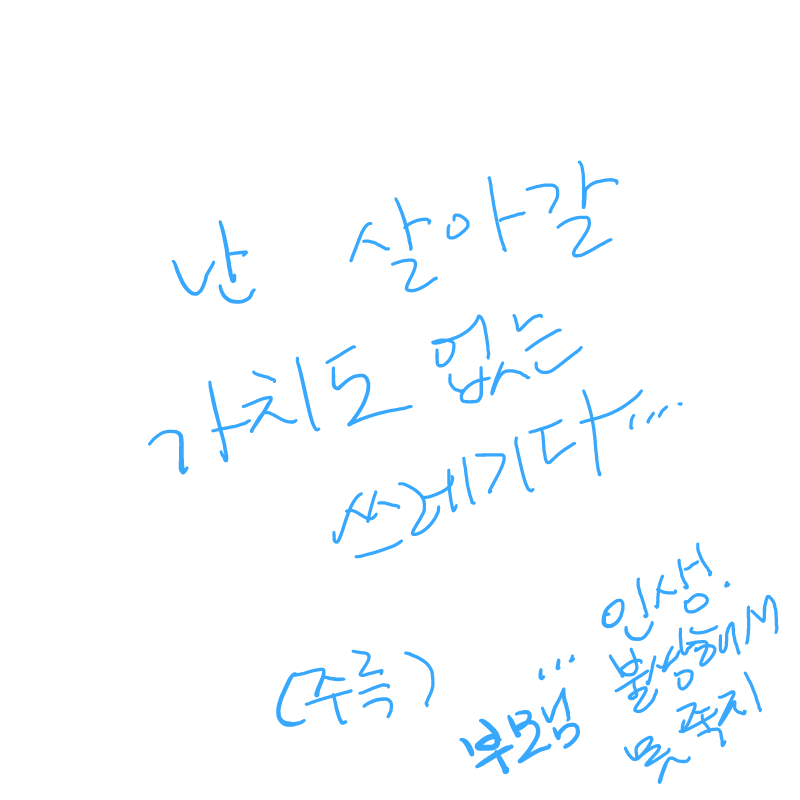 난 살아갈
가치도 없는
쓰레기다...
(주륵)
... 인생.
부모님 불쌍해서
못 죽지